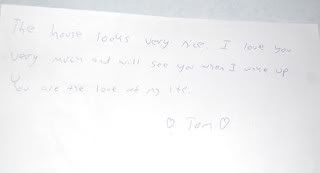 The house looks very nice. I love you
very much and will see you when I wake up
You are the love of my life.
♡ Tom ♡